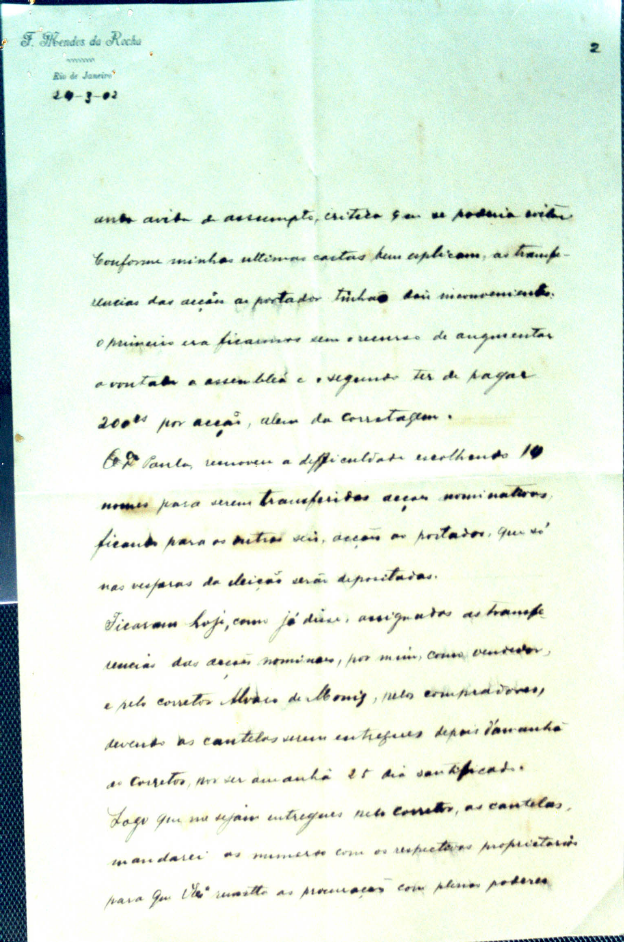 F. Mendes da Rocha
Rio de Janeiro
24-3-02
2
assumpto, critica que se poderia evitar
Conforme minhas ultimas cartas bem explicam, as transfe-
rencias das acções ao portador tinhão dois inconvenientes.
o primeiro era ficarmos sem o recurso de augmentar
a assembléa e o segundo ter de pagar
200rs por acção, alem da corretagem.
Paula, removeu a difficuldade escolhendo 14
nomes para serem transferidas acções nominativas,
ficando para os outros seis, acções ao portador, que só
nas vesperas da eleição serão depositadas.
Ficaram hoje, como já disse, assignados as transfe-
rencias das acções nominaes, por mim, como vendedor,
e pelo corretor Alvaro de Moniz, pelos compradores,
devendo as cautelas serem entregues depois d'amanhã
ao corretor, por ser amanhã 25 dia santificado.
Logo que me sejam entregues pelo corretor, as cautelas,
mandarei os numeros com os respectivos proprietarios
para que as procurações com plenos poderes